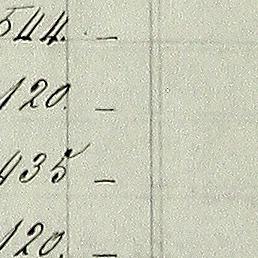 544. —
120. —
935 —
120. —